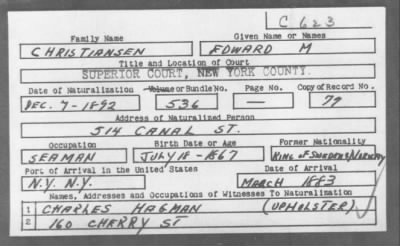 C 623
Family Name Given Name or Names
CHRISTIANSEN EDWARD M
Title and Location of Court
SUPERIOR COURT, NEW YORK COUNTY.
Date of Naturalization Volume or Bundle No. Page No. Copy of Record No.
DEC. 7-1892 536 — 79
Address of Naturalized Person
514 CANAL ST.
Occupation Birth Date or Age Former Nationality
SEAMAN JULY 18-1867 KING OF SWEDEN & NORWAY
Port of Arrival in the United States Date of Arrival
N.Y. N.Y. MARCH 1883
Names, Addresses and Occupations of Witnesses To Naturalization
1 CHARLES HAGMAN (UPHOLSTER)
2 160 CHERRY ST